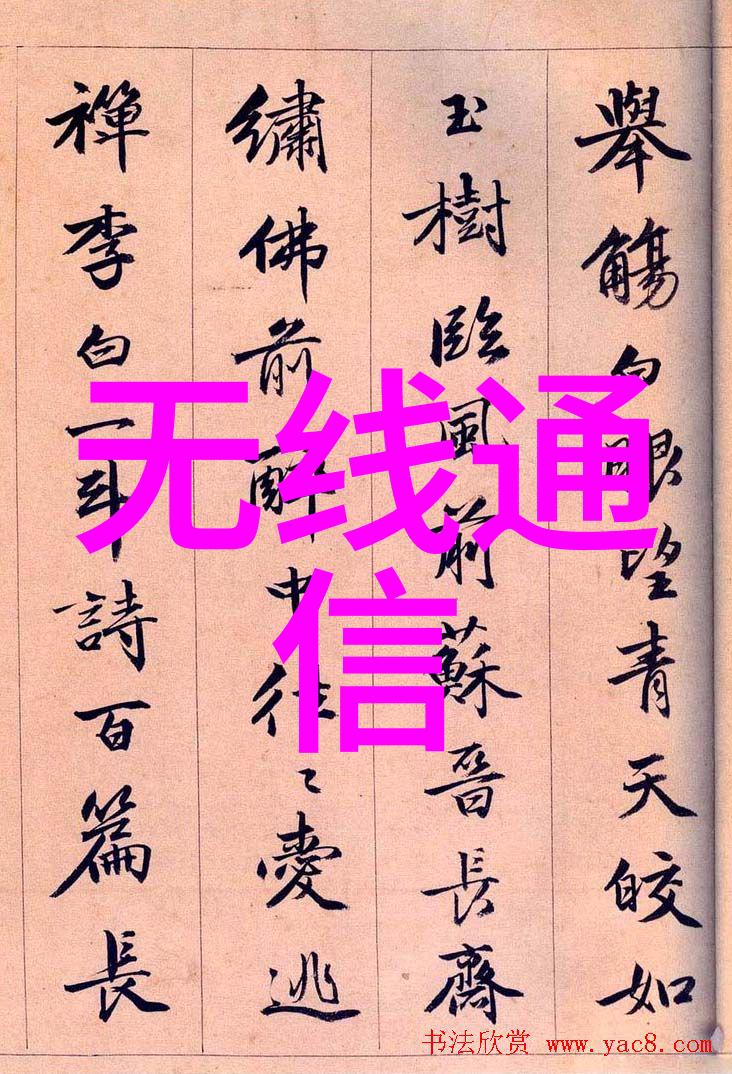 舉觴白眼望青天皎如
玉樹臨風前蘇晉長齋
繡佛前醉中往〻愛逃
禪李白一斗詩百篇長
无线通
信
书法欣赏 www.yac8.com